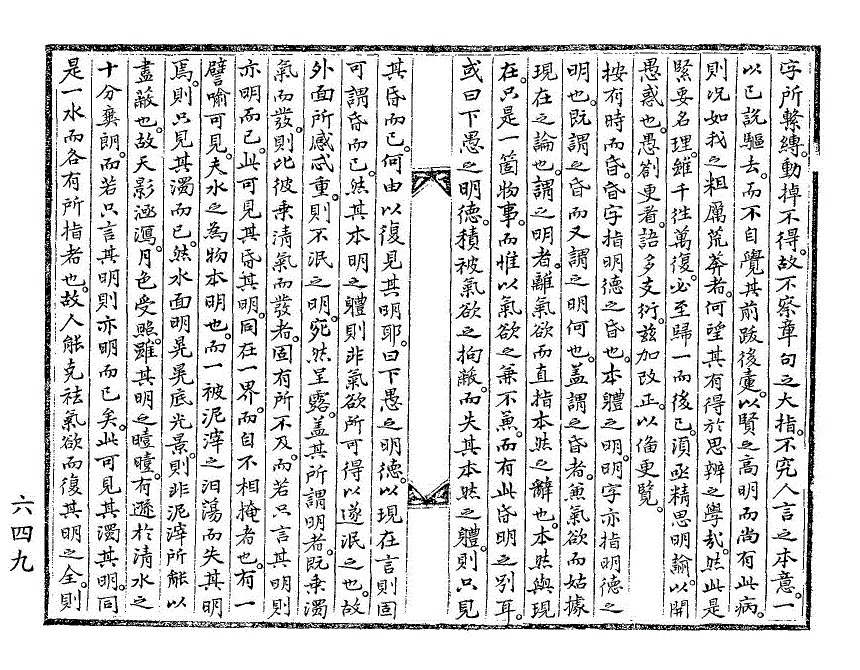 字所繫縛。動掉不得。故不察章句之大指。不究人言之本意。一
以已說驅去。而不自覺其前跋後疐。以賢之高明而尚有此病。
則况如我之粗厲荒莽者。何望其有得於思辨之學哉。然此是
緊要名理。雖千徃萬復。必至歸一而後已。須亟精思明論。以開
愚惑也。愚劄更看。語多支衍。玆加改正。以俻更覽。
按有時而昏。昏字指明德之昏也。本體之明。明字亦指明德之
明也。旣謂之昏而又謂之明何也。盖謂之昏者。兼氣欲而姑據
現在之論也。謂之明者。離氣欲而直指本然之辭也。本然與現
在。只是一箇物事。而惟以氣欲之兼不兼。而有此昏明之別耳。
或曰下愚之明德。積被氣欲之拘蔽。而失其本然之體。則只見
其昏而已。何由以復見其明耶。曰下愚之明德。以現在言則固
可謂昏而已。然其本明之體則非氣欲所可得以遂泯之也。故
外面所感忒重。則不泯之明。宛然呈露。盖其所謂明者。旣乘濁
氣而發。則比彼乘淸氣而發者。固有所不及。而若只言其明則
亦明而已。此可見其昏其明。同在一界。而自不相掩者也。有一
譬喻可見。夫水之爲物本明也。而一被泥滓之汩蕩而失其明
焉。則只見其濁而已。然水面明晃晃底光景。則非泥滓所能以
盡蔽也。故天影涵瀉。月色受照。雖其明之曀曀。有遜於淸水之
十分爽朗。而若只言其明則亦明而已矣。此可見其濁其明。同
是一水而各有所指者也。故人能克祛氣欲而復其明之全。則
六四九